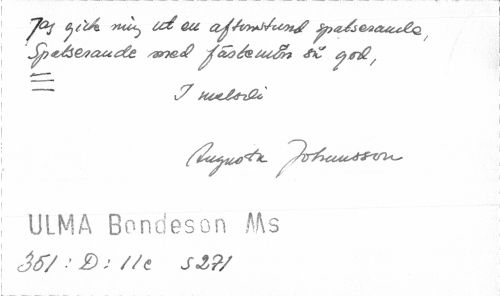 Jag gick mig ut en aftonstund spatserande,
Spatserande med fästemön så god,
I melodi
Augusta Johansson
ULMA Bondeson Ms
351 : D : 11c s 271